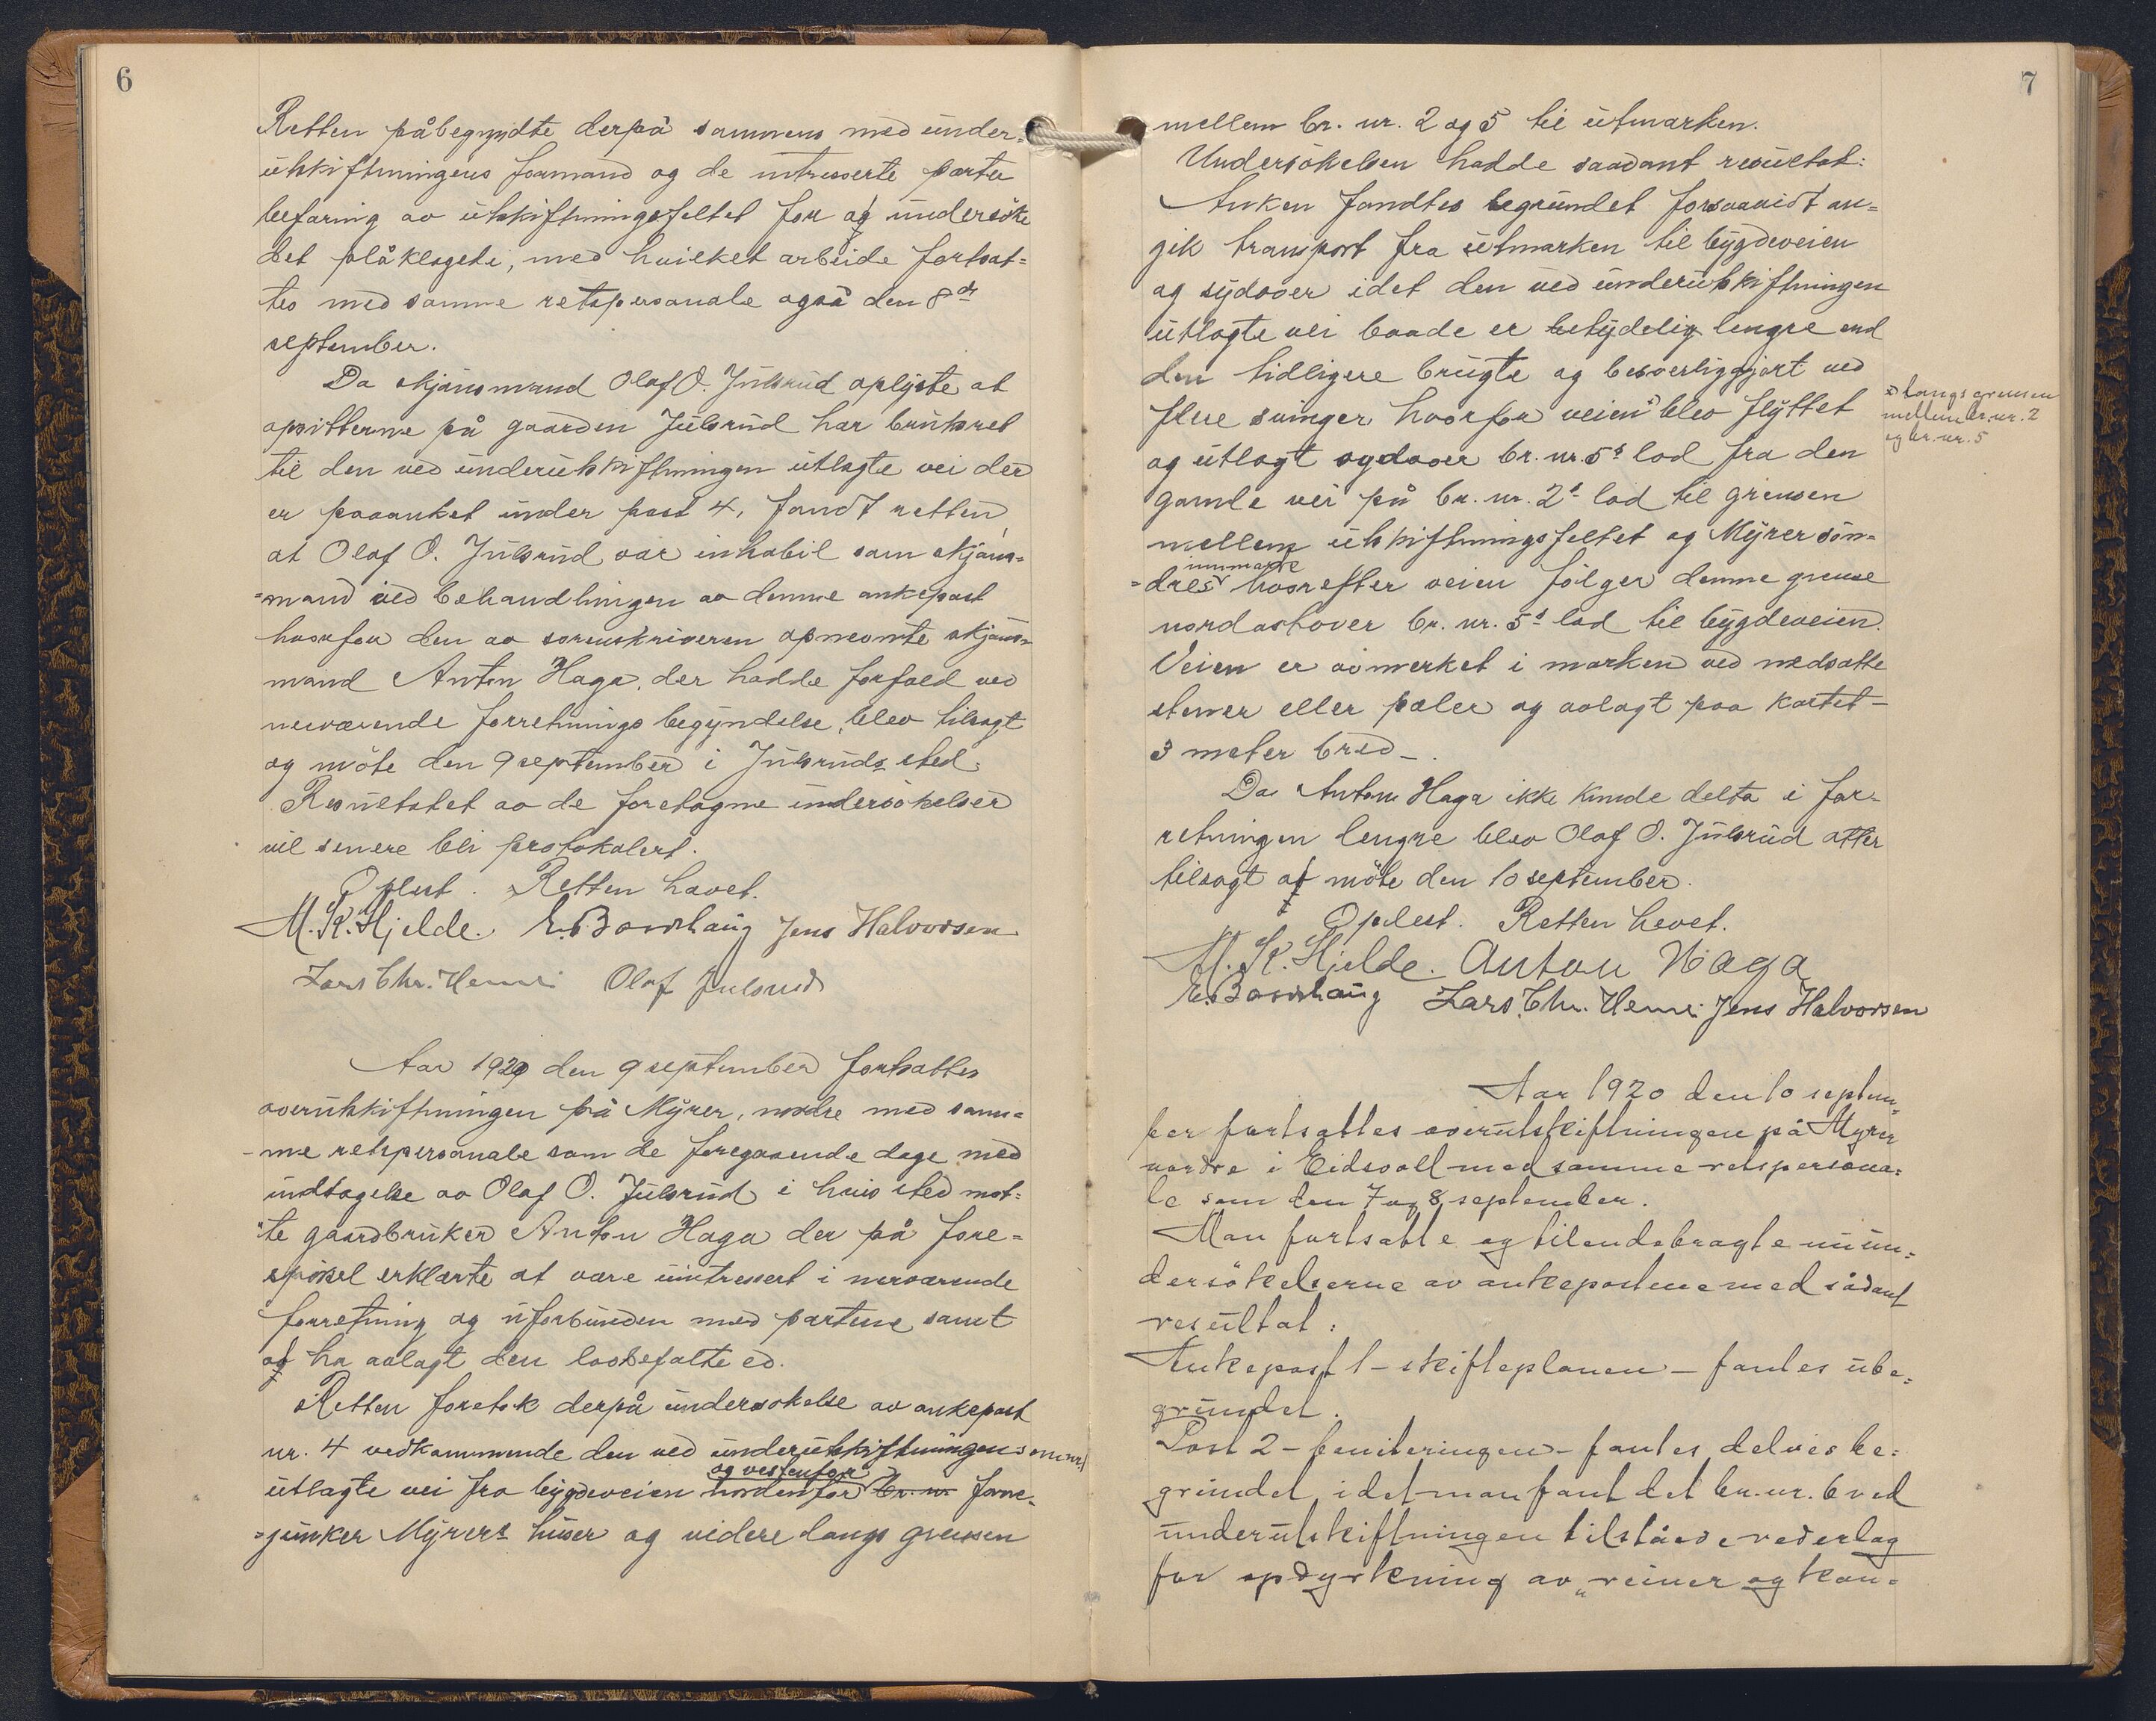 6
Retten påbegyndte derpå sammens med under-
utskiftningens formand og de intresserte parter
befaring av utskiftningsfeltet for og undersöke
det påklagede, med hvilket arbeide fortsat-
tes med samme retspersonale også den 8de
september.
Da skjönsmand Olaf O. Julsrud oplyste at
opsitterne på gaarden Julsrud har bruksret
til den ved underutskiftningen utlagte vei der
er paaanket under post 4, fandt retten,
at Olaf O. Julsrud var inhabil som skjöns-
-mand ved behandlingen av denne ankepost
hvorfor den av sorenskriveren opnevnte skjöns-
mand Anton Haga, der hadde forfald ved
nerværende forretnings begyndelse, blev tilsagt
og möte den 9 september i Julsruds sted.
Resultatet av de foretagne undersökelser
vil senere bli protokolert.
Oplest. Retten hævet.
M. K. Hjelde. E. Bowhaug Jens Halvorsen
Lars Chr. Henni Olaf Julsrud
Aar 1920 den 9 september fortsattes
overutskiftningen på Myrer, nordre med sam-
-me retspersonale som de foregaaende dage med
undtagelse av Olaf O. Julsrud i hvis sted möt-
te gaardbruker Anton Haga der på fore-
spörsel erklærte at være uintressert i nerværende
forretning og uforbunden med partene samt
at ha avlagt den lovbefalte ed.
Retten foretok derpå undersökelse av ankepost
nr. 4 vedkommende den ved underutskiftningen
utlagte vei fra bygdeveien nordenfor og vestenfor br. nr. Jome-
-junker Myrers huser og videre langs grensen
7
mellem br. nr. 2 og 5 til utmarken.
Undersökelsen hadde saadant resultat:
Anken fandtes begrundet forsaavidt an-
gik transport fra utmarken til bygdeveien
og sydover idet den ved underutskiftningen
utlagte vei baade er betydelig lengre end
den tidligere brugte og besverliggjort ved
flere svinger hvorfor veien blev flyttet
langs grensen
mellem br. nr. 2
og br. nr. 5
og utlagt sydover br. nr. 5s lod fra den
gamle vei på br. nr. 2s lod til grensen
mellem utskiftningsfeltet og Myrer sön-
-dres innmark hvorefter veien fölger denne grense
nordostover br. nr. 5s lod til bygdeveien.
Veien er avmerket i marken ved nedsatte
stener eller pæler og avlagt paa kartet-
3 meter bred-.
Da Anton Haga ikke kunde delta i for-
retningen lengre blev Olaf O. Julsrud atter
tilsagt at möte den 10 september.
Oplest. Retten hevet.
M. K. Hjelde. Anton Haga
E. Bowhaug Lars Chr. Henni Jens Halvorsen
Aar 1920 den 10 septem-
ber fortsattes overutskiftningen på Myrer
nordre i Eidsvoll med samme retspersona-
le som den 7 og 8 september.
Man fortsatte og tilendebragte nu un-
dersökelserne av ankepostene med sådant
resultat:
Ankepost 1 - skifteplanen - fantes ube-
grundet.
Post 2 - boniteringen - fantes delvis be-
grundet, idet man fant det br. nr. 6 ved
underutskiftningen tilståede vederlag
for opdyrkning av „reiner og kan-